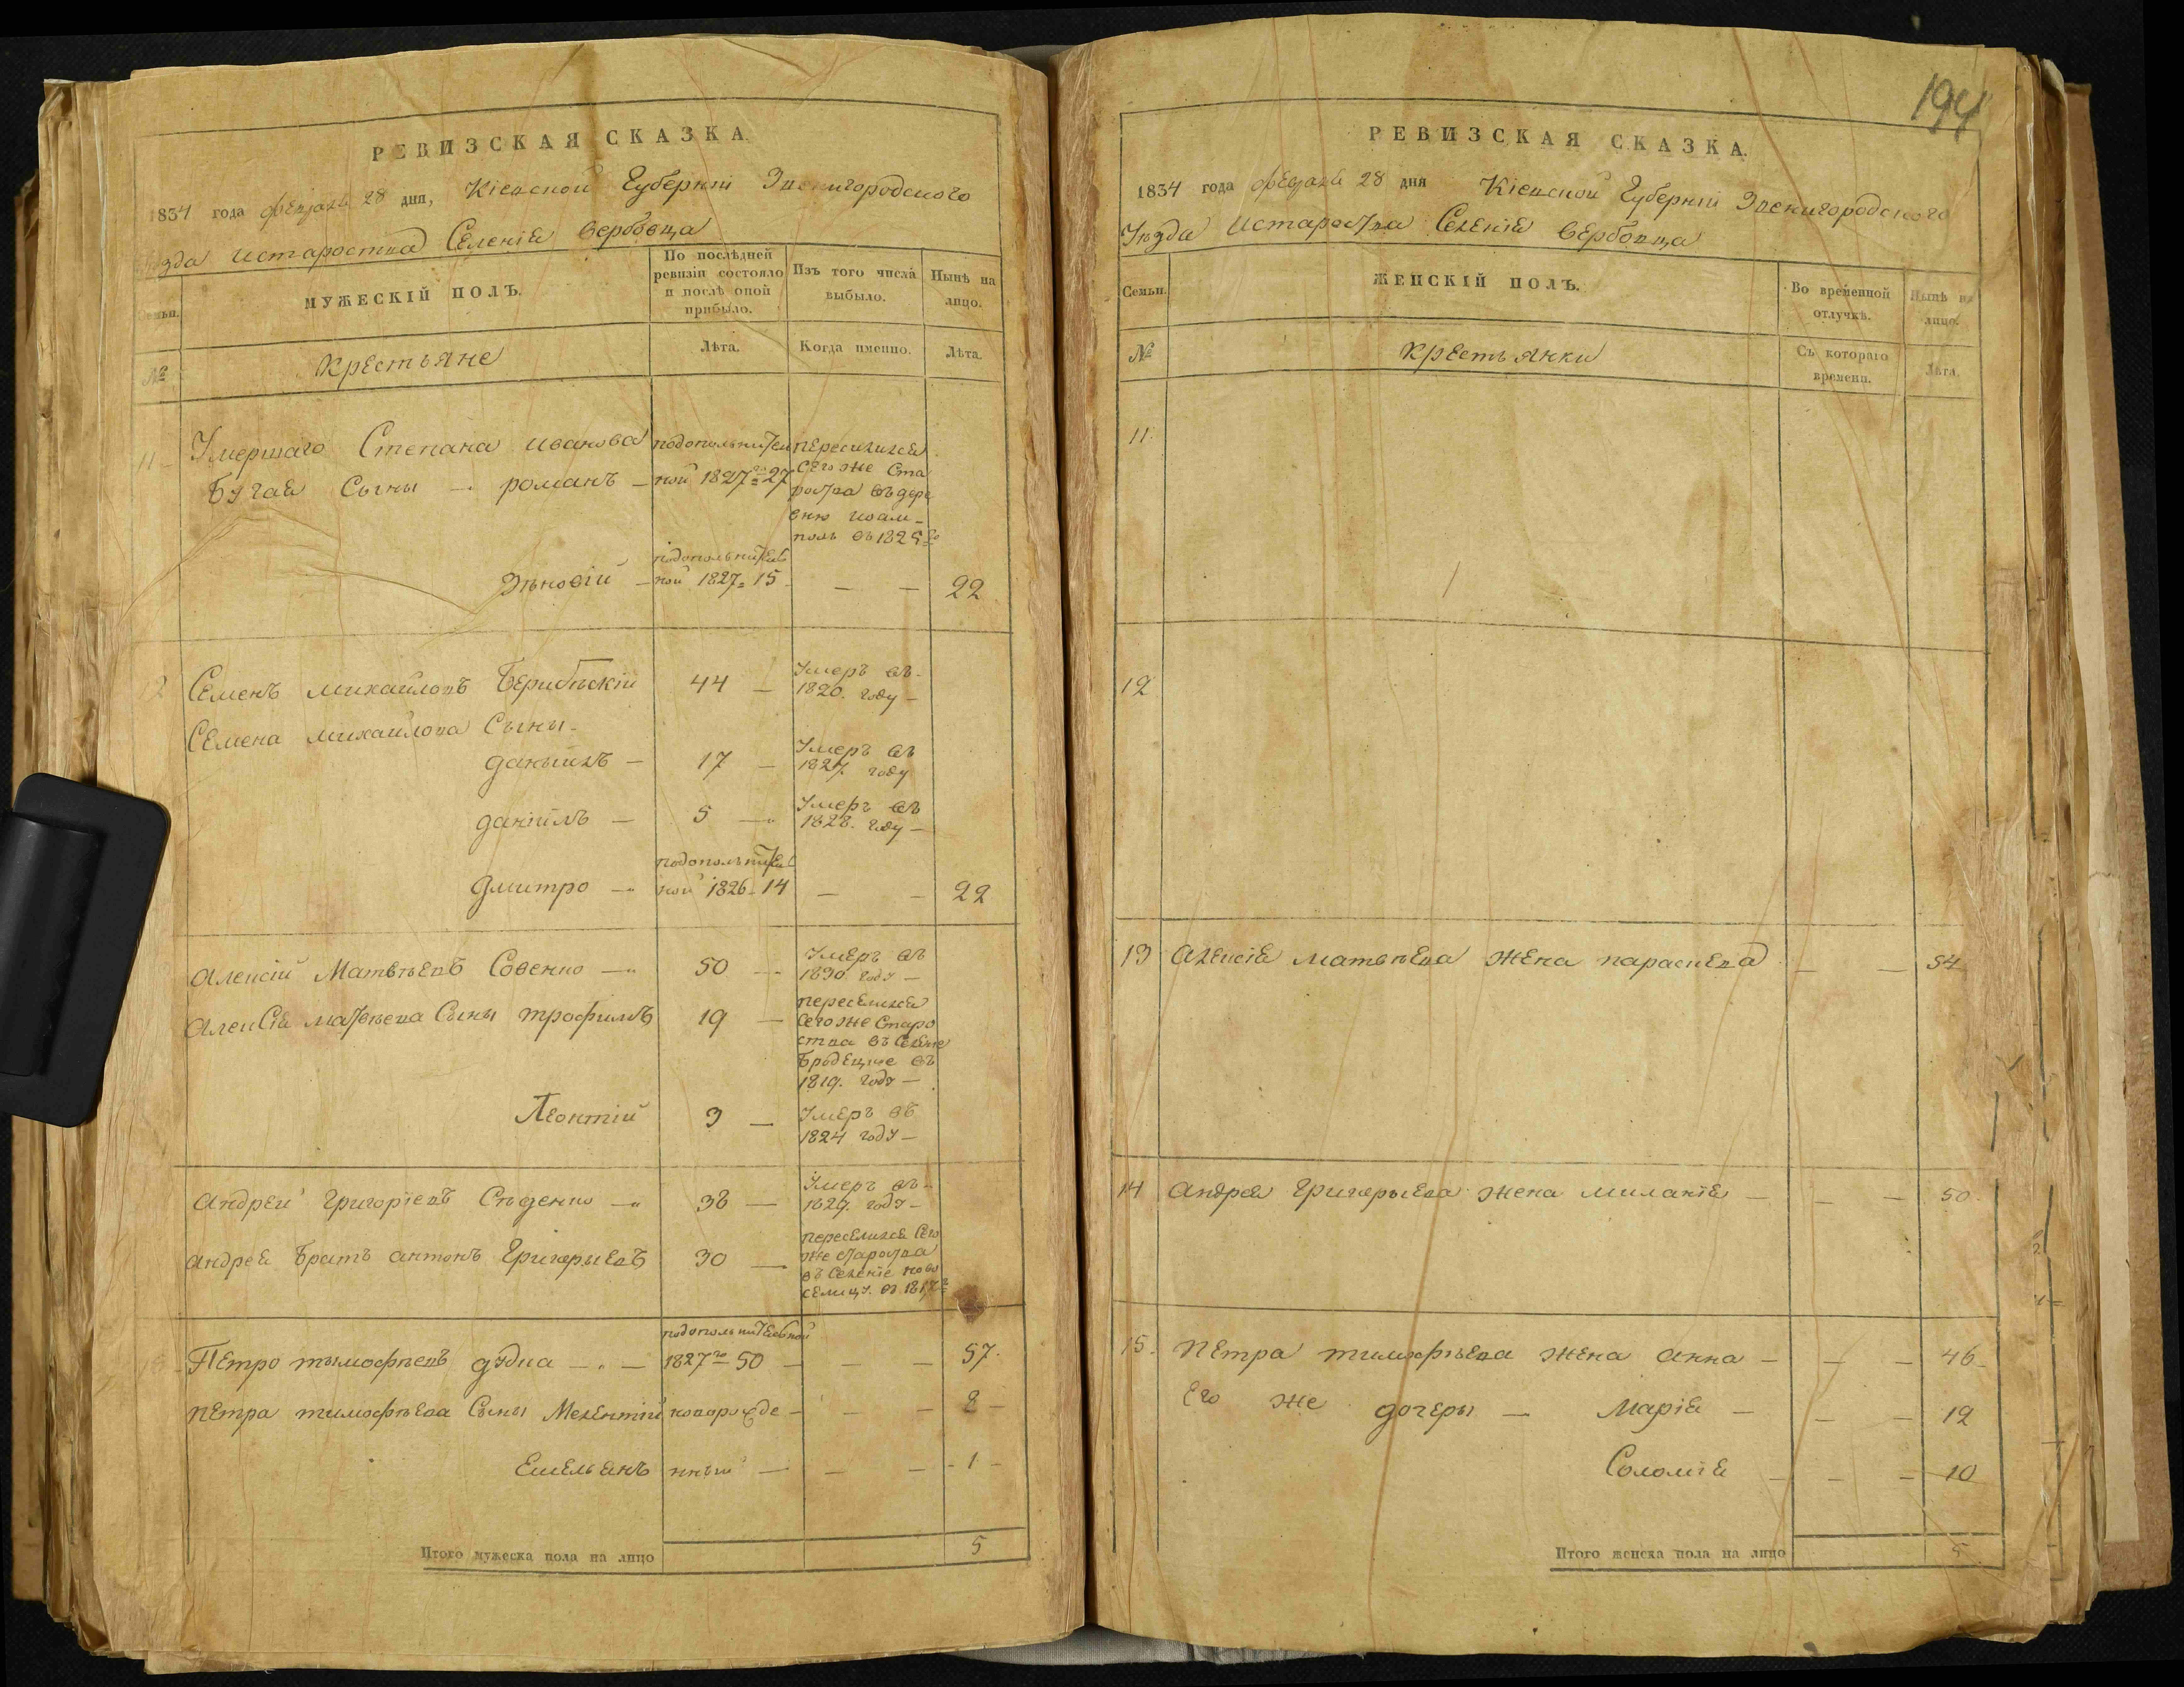 РЕВИЗСКАЯ СКАЗКА
1834 года февраля 28 дня, Кіевской Губерніи Звенигородского
Уезда Истароства Селенія Вербовца
Семьи. МУЖЕСКІЙ ПОЛЪ. По послѣдней ревизіи состояло и послѣ оной прибыло. Изъ того числа выбыло. Нынѣ на лицо.
№ Крестьяне Лѣта. Когда именно. Лѣта.
11 Умершаго Степана Иванова
Бугая Сыны — романъ —
подополнител
ной 1827го 27
пересилился
сего же Ста
роства въ дере
вню
поль въ 182
Зѣновій —
подополнител
ной 1827= 15 — — 22
12 Семенъ михайловъ 44 — Умеръ въ
1820. году —
Семена михайлова Сыны —
даныилъ — 17 — Умеръ въ
1827. году
даніилъ — 5 — Умеръ въ
1828. году —
Дмитро — подополнител
ной 1826 - 14 — — 22
Алексій Матвѣевъ Совенко — 50 — Умеръ въ
1830 году —
Алексія матвѣева Сыны трофимъ 19 — переселился
Сего же Старо
ства въ Селение
Бродецкое въ
1819. году —
Леонтій 3 — Умеръ въ
1824 году —
Андрей григоріевъ Сѣденко — 38 — Умеръ въ
1829. году —
Андрея Братъ антонъ Григорыевъ 30 — переселился Сего
же староства
въ Селеніе ново
селицу. въ 1817
Петро тымофѣевъ дудка — подополнителной
1827го 50 — — — 57.
Петра тимофѣева Сыны Мелентій новорожде — — — 2 —
Емельянъ нный — — — 1 —
Итого мужеска пола на лицо 5
194
РЕВИЗСКАЯ СКАЗКА.
1834 года февраля 28 дня Кіевской Губерніи Звенигородского
Уѣзда Истароства Селенія Вербовца
Семьи. ЖЕНСКІЙ ПОЛЪ. Во временной отлучкѣ. Нынѣ на лицо.
№ Крестьянки Съ котораго времени. Лѣта.
11.
12
13 Алексія матвѣева жена параскева — — 54
14 Андрея Григорыева жена миланія — — — 50.
15. Петра тимофѣева жена Анна — — — 46 —
Его же дочеры — Марія — — — 12
Соломія — — — 10
Итого женска пола на лицо 5